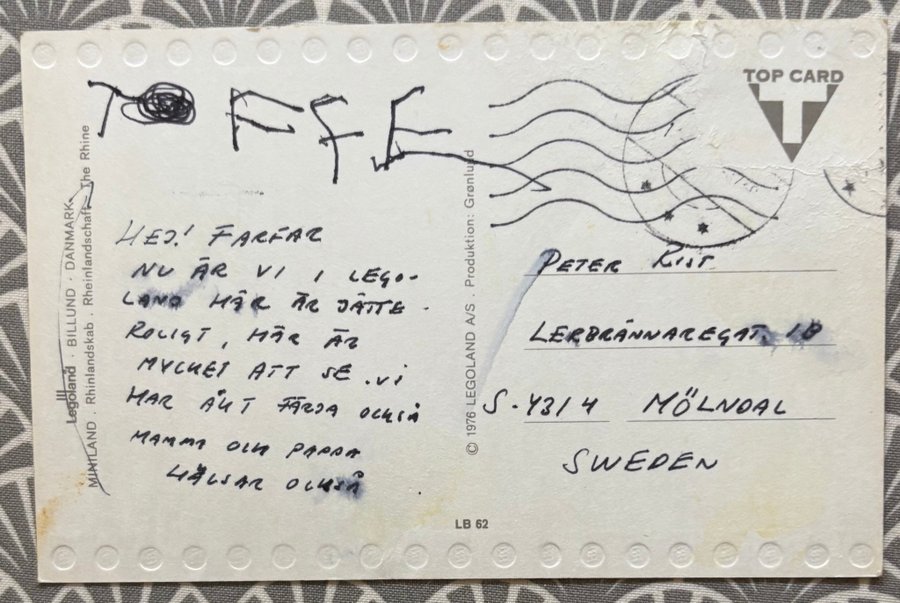 TOFFE
HEJ! FARFAR
NU ÄR VI I LEGO-
LAND HÄR ÄR JÄTTE-
ROLIGT, HÄR ÄR
MYCKET ATT SE. VI
HAR ÅKT FÄRJA OCKSÅ
MAMMA OCH PAPPA
HÄLSAR OCKSÅ
Legoland · BILLUND · DANMARK
MINILAND . Rhinlandskab . Rheinlandschaft . The Rhine
© 1976 LEGOLAND A/S . Produktion: Grønlund
TOP CARD
T
PETER RIST
LERBRÄNNAREGAT. 18
S-4314 MÖLNDAL
SWEDEN
LB 62